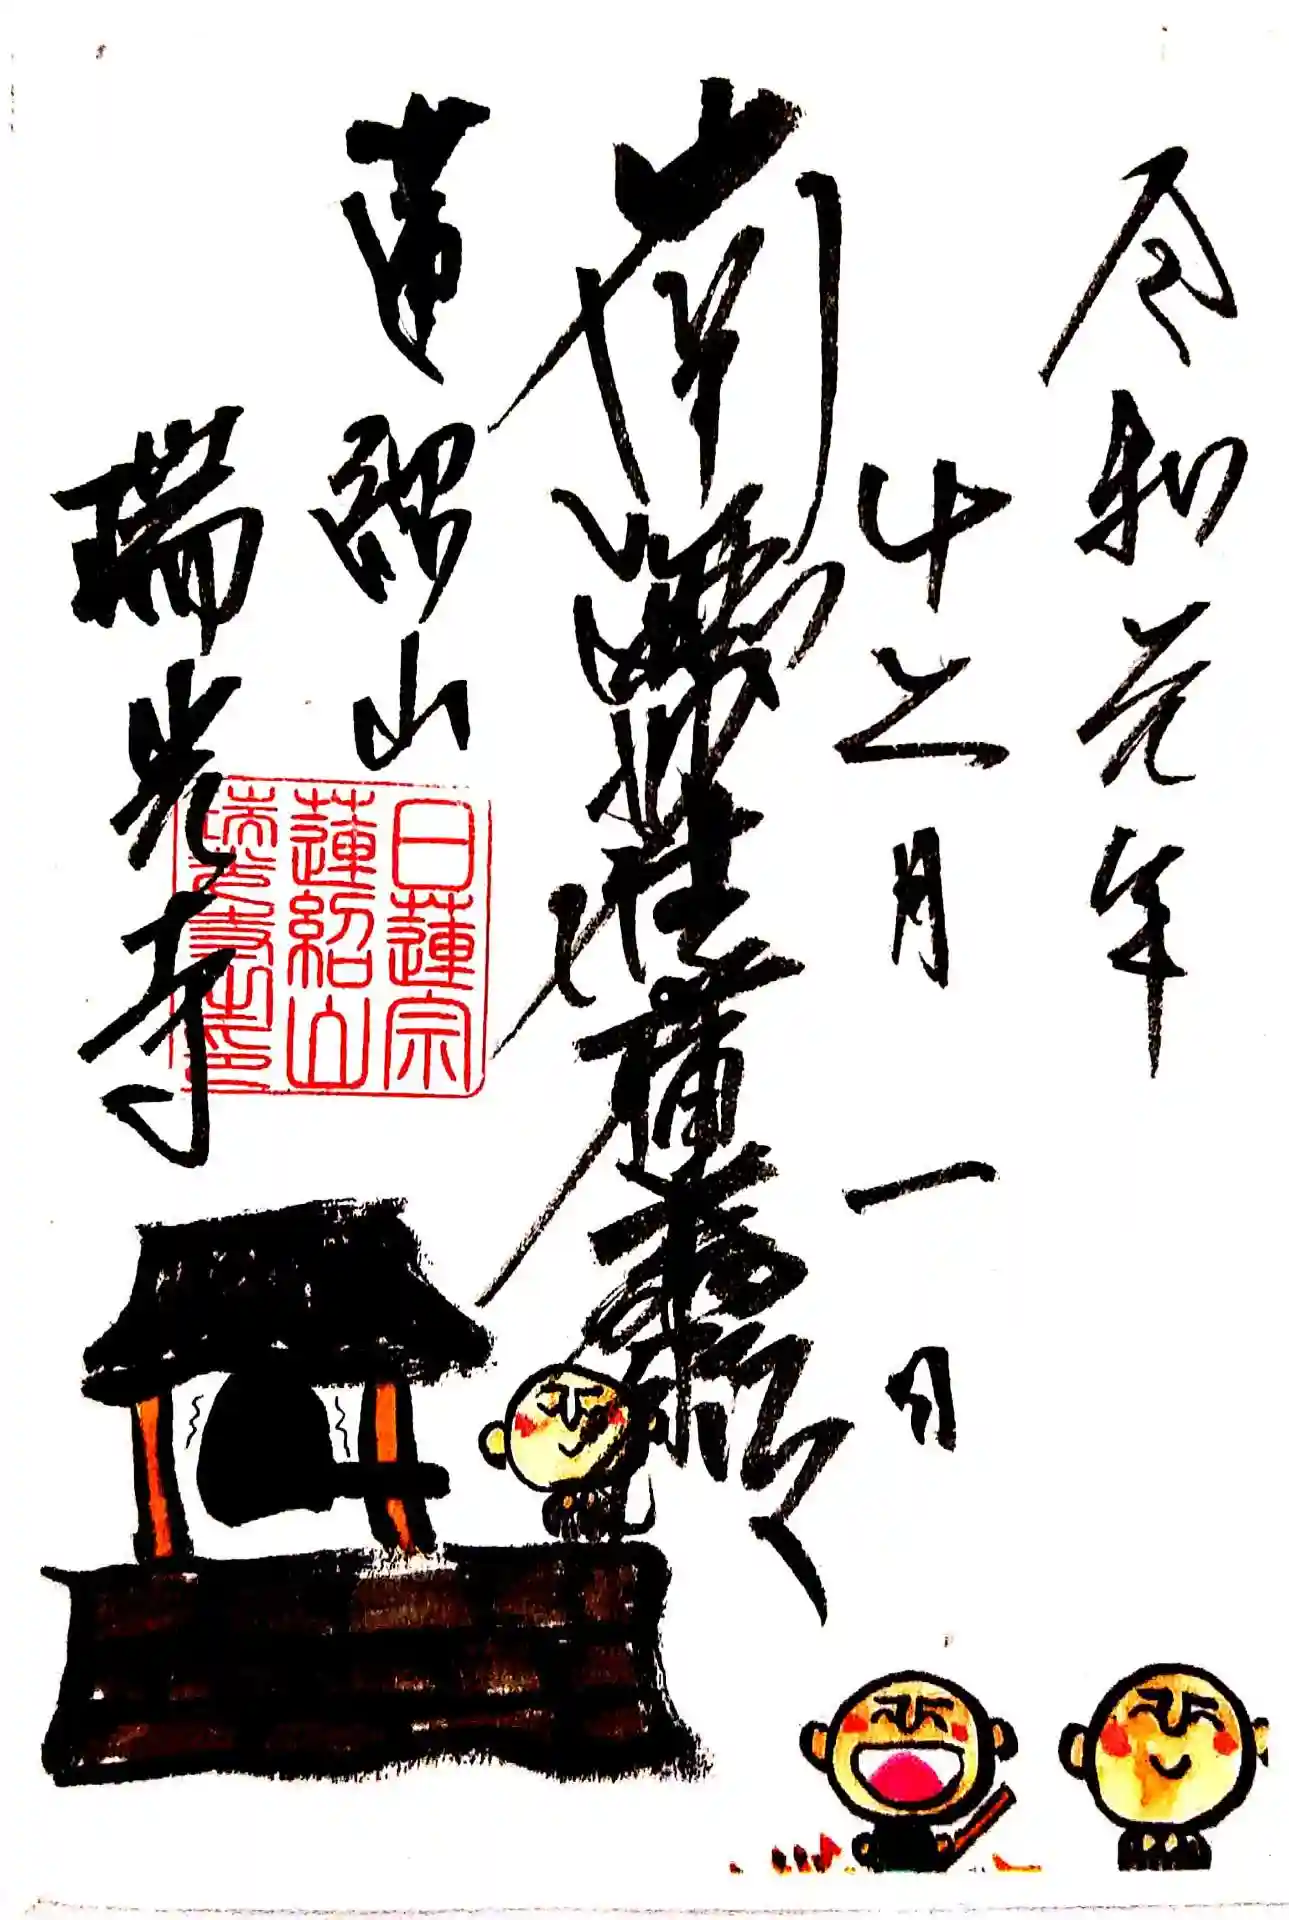 令和元年
十二月一日
南無妙法蓮華経
蓮紹山
瑞光寺
日蓮宗
蓮紹山
瑞光寺之印